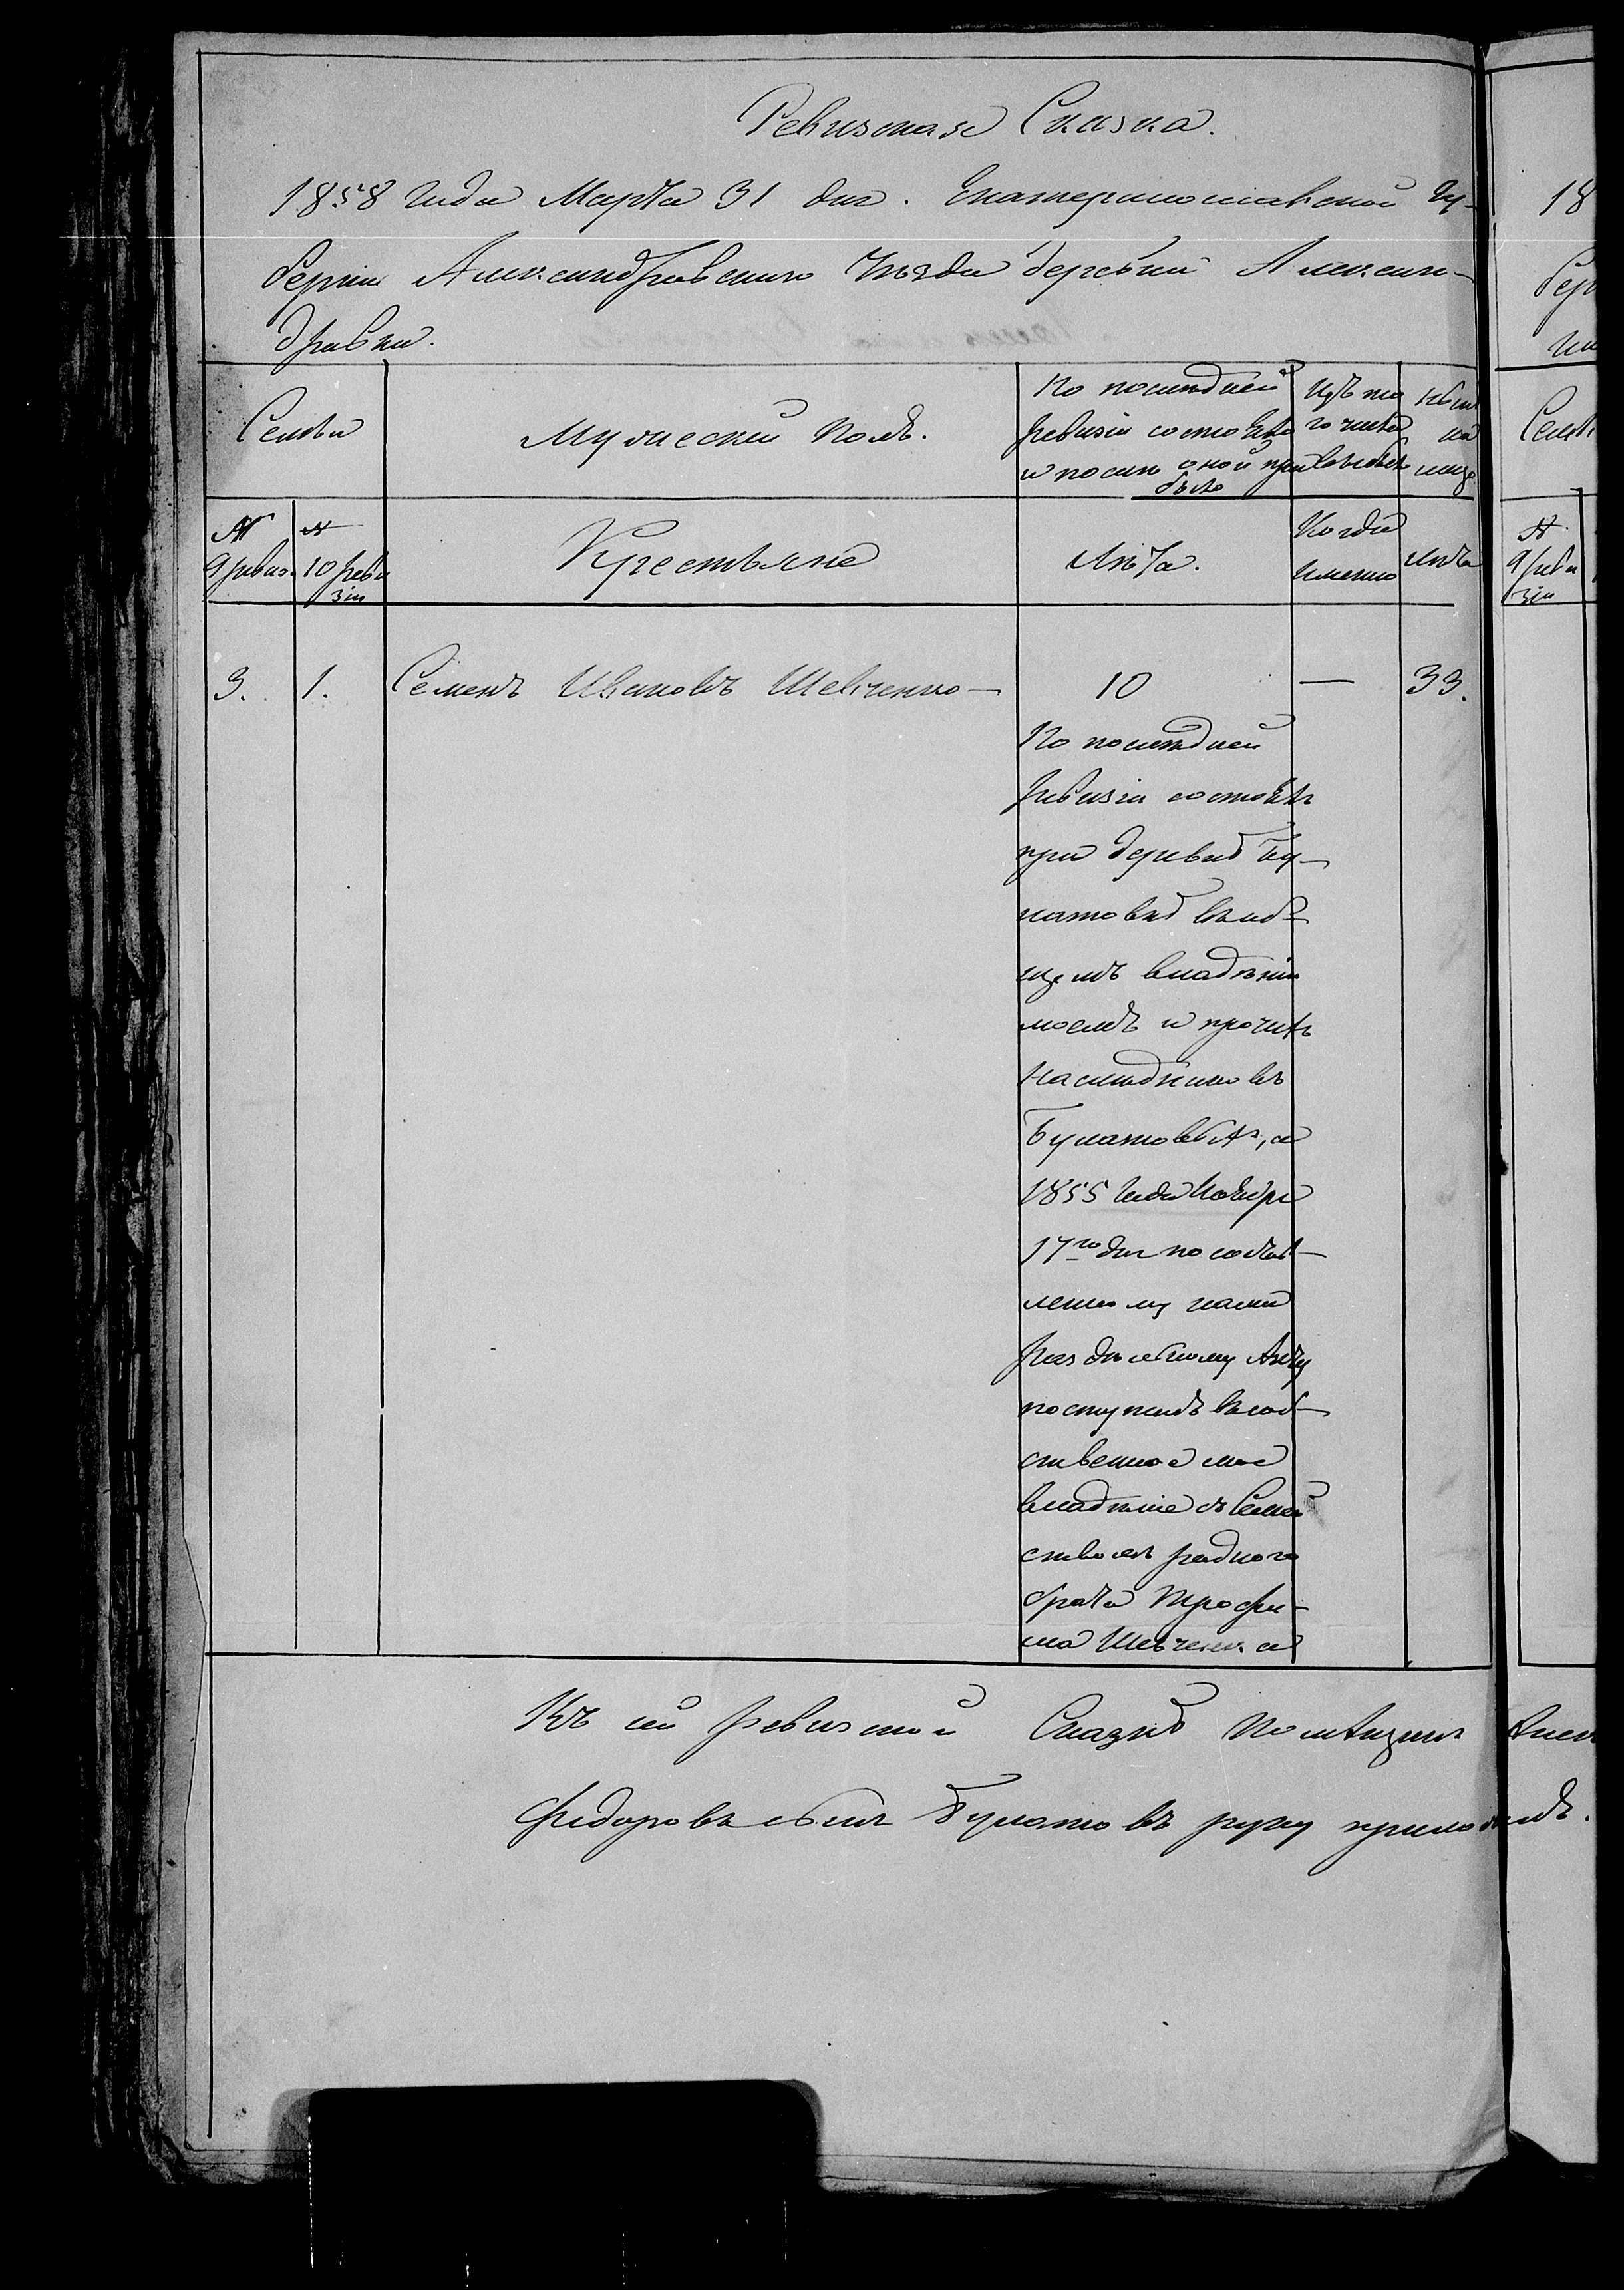 Ревизская Сказка.
1858 года Марта 31 дня. Екатеринославской Гу-
берніи Александровскаго Уѣзда деревни Алексан-
дровки.
Семьи
Мужескій полъ.
По послѣдней ревизіи состояло и послѣ оной прибыло
Изъ того числа выбыло
Нынѣ на лицо
№ 9 ревиз.
№ 10 ревизіи
Крестьяне
Лѣта.
Когда именно
Лѣта
3. 1. Семенъ Ивановъ Шевченко — 10 — 33.
По послѣдней
ревизіи состоялъ
при деревнѣ Бу-
латовкѣ въ об-
щемъ владѣніи
моемъ и прочихъ
наслѣдниковъ
Булатовыхъ, а
1855 года Ноября
17го дня по состав-
ленному нами
раздѣльному Акту
поступилъ въ соб-
ственное мое
владѣніе съ Семей
ствомъ роднаго
брата Трофи-
ма Шевченка
Къ сей ревизской Сказкѣ помѣщикъ
Федоровъ сынъ Булатовъ руку приложилъ.
18
Семьи
№
9 реви
зіи